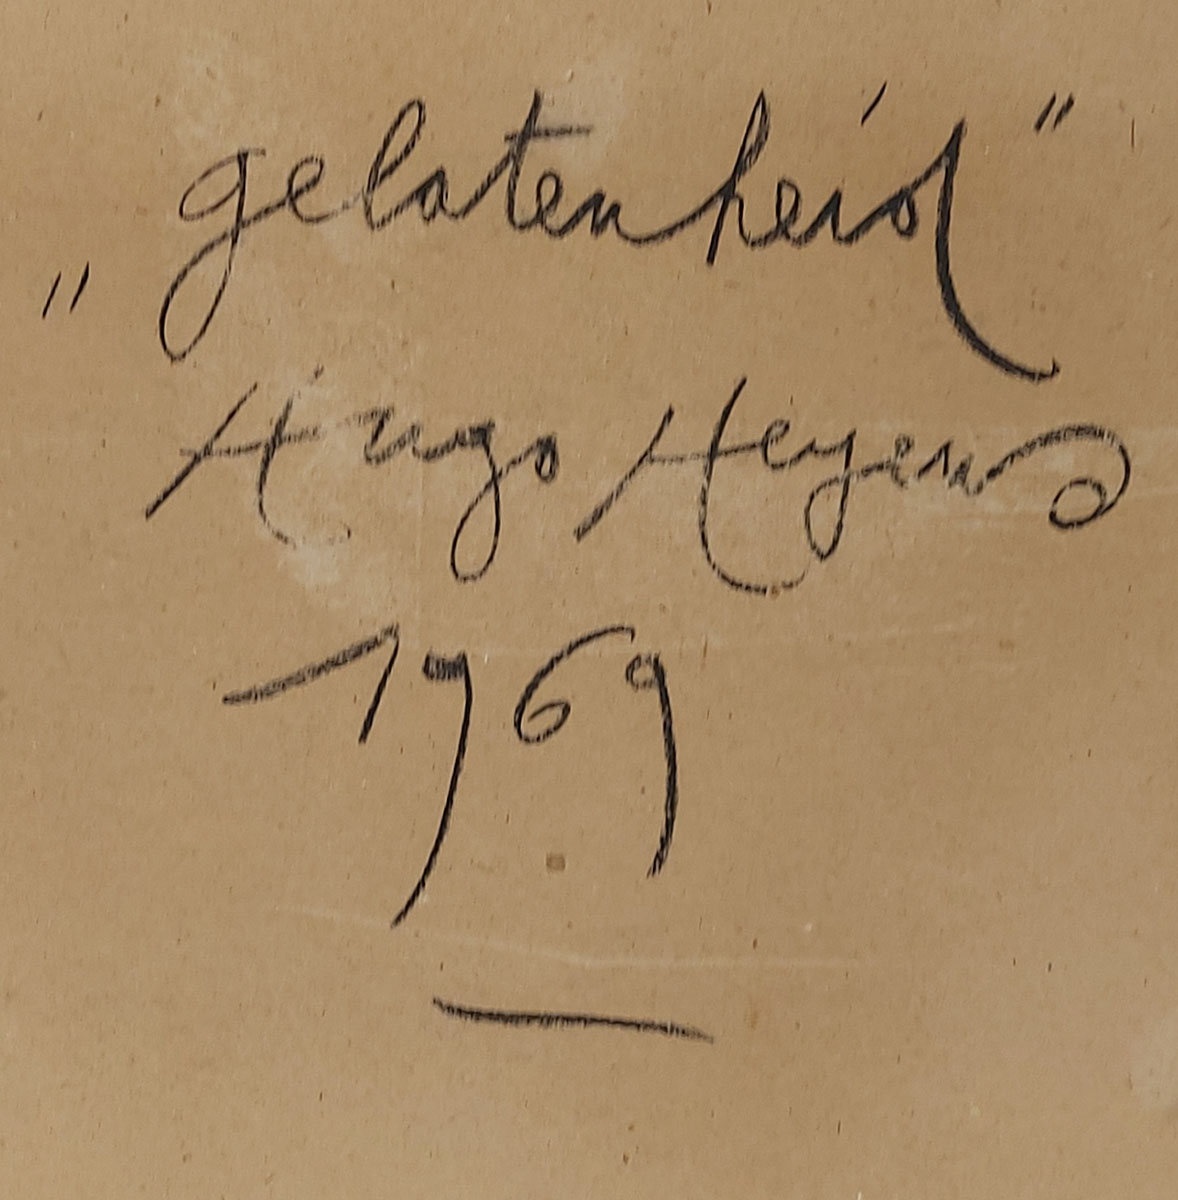 „gelatenheid"
Hugo Heyens
1969